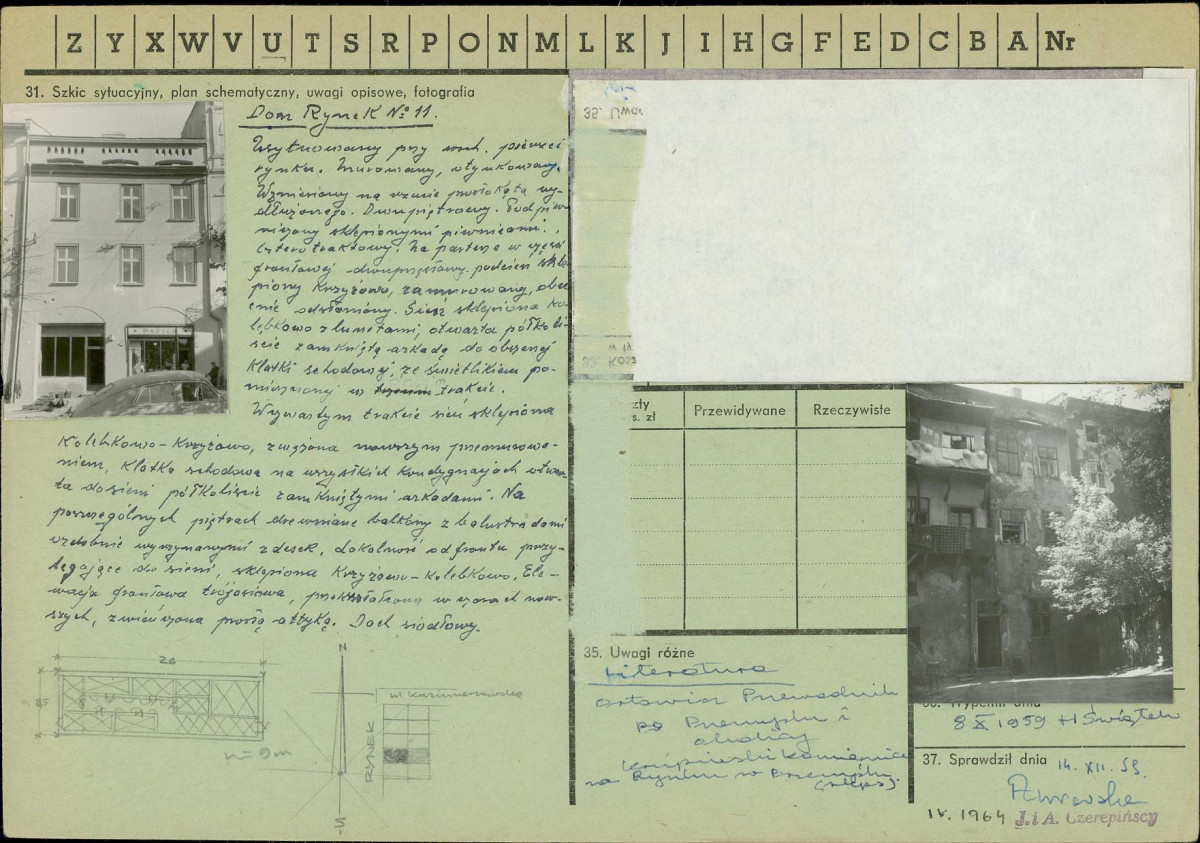 Z Y X W V U T S R P O N M L K J I H G F E D C B A Nr
31. Szkic sytuacyjny, plan schematyczny, uwagi opisowe, fotografia
Dom Rynek № 11.
Usytuowany przy wsch. pierzei
rynku. Murowany, otynkowany.
Wzniesiony na rzucie prostokąta wy-
dłużonego. Dwupiętrowy. Podpiw-
niczony sklepionymi piwnicami.
Czterotraktowy. Na parterze w części
frontowej dwuprzęsłowy podcień skle-
piony krzyżowo, zamurowany, obec-
nie odsłonięty. Sień sklepiona ko-
lebkowo z lunetami, otwarta półkoli-
ście zamkniętą arkadą do obszernej
klatki schodowej, ze świetlikiem po-
mieszczonej w trakcie.
W czwartym trakcie sień sklepiona
kolebkowo-krzyżowo, zwężona nowszym przemurowa-
niem, klatka schodowa na wszystkich kondygnacjach otwar-
ta do sieni półkoliście zamkniętymi arkadami. Na
poszczególnych piętrach drewniane balkony z balustradami
ozdobnie wyrzynanymi z desek. Lokalność od frontu przy-
legające do sieni, sklepiona krzyżowo-kolebkowo. Ele-
wacja frontowa trójosiowa, przekształcona w czasach now-
szych, zwieńczona prostą attyką. Dach siodłowy.
PAPIER
26
h = 9 m
N
S
ul Kazimierzowska
RYNEK
35. Uwar
33. Kosz
zł
Przewidywane
Rzeczywiste
35. Uwagi różne
Literatura
Orłowicz Przewodnik
po Przemyślu i
okolicy
Krupieski Kamienice
na Rynku w Przemyślu
(rękps).
8 X 1959 H Świątek
37. Sprawdził dnia 14. XII. 59.
IV. 1964 J. i A. Czerepińscy